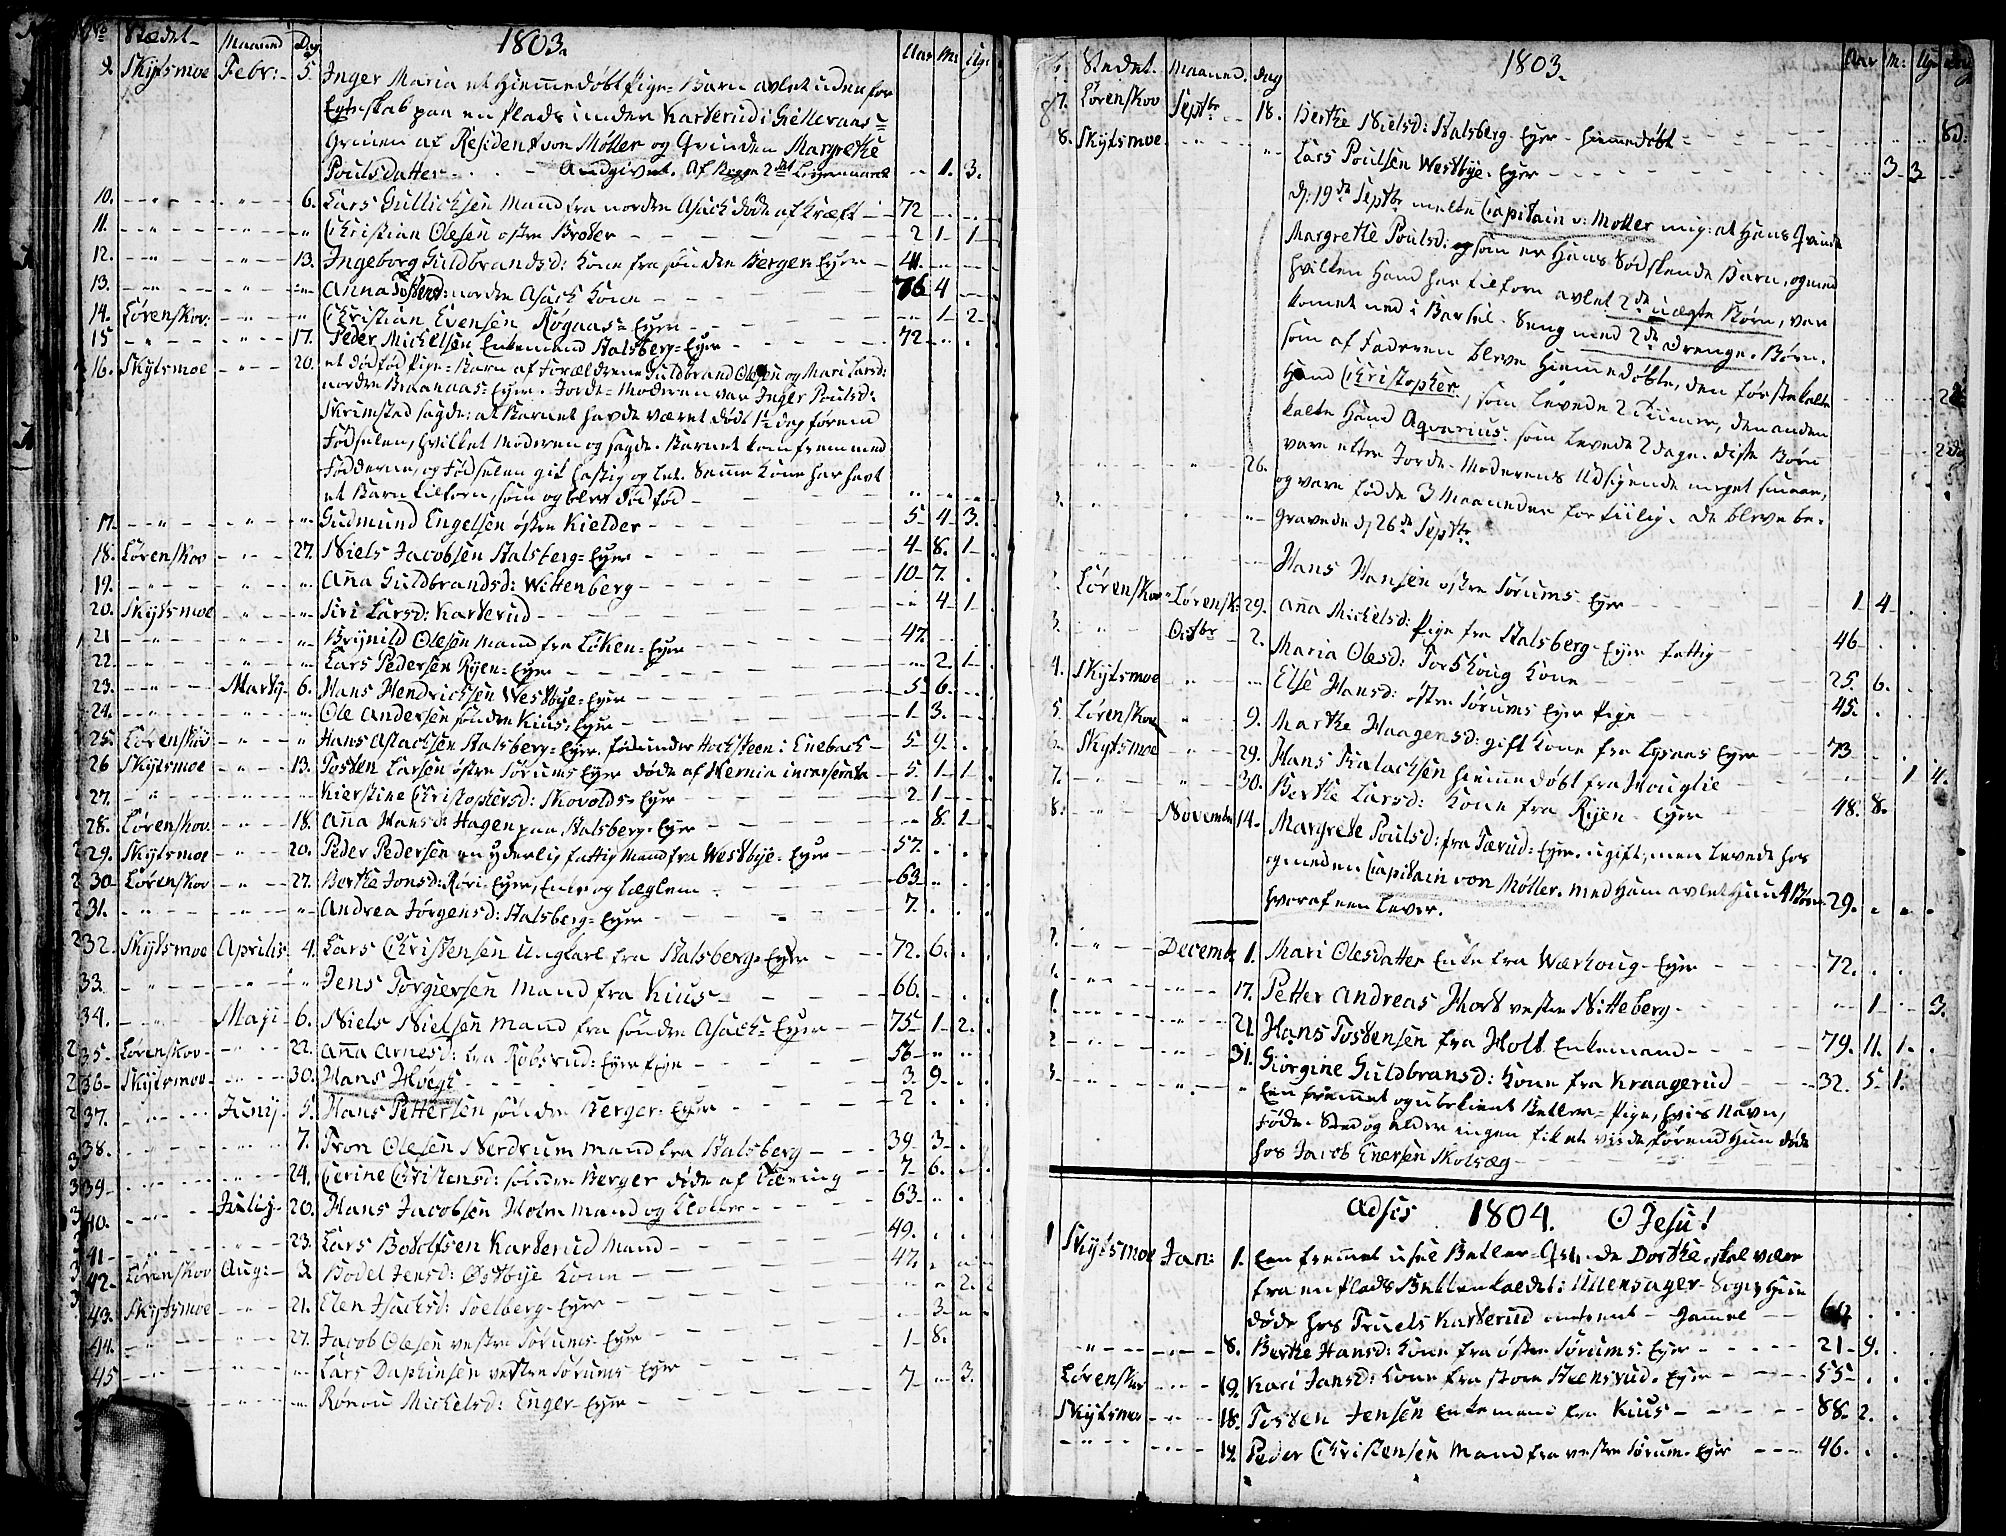 No Stedet Maaned Dag 1803. Aar M: Ug:
9. Skytsmoe Febr: 5. Inger Maria et Hiemmedøbt Pige-Barn avlet uden for
Egteskab paa en Plads under Karterud i Gielleraas-
Grinen af Resident von Møller og Qvinden Margrethe
Poulsdatter - Andgivet. Af begge 2det Leyermaal 1. 3.
10. 6. Lars Gullichsen Mand fra nordre Asach døde af Kræft 72
11. Christian Olesen østre Broter 2 1 1
12. 13. Ingeborg Guldbrandsd: Kone fra søndre Berger-Eyer 41.
13. Anna Tostensd: nordre Asach Kone 76 4
14. Lørenskov: Christian Evensen Røgaas-Eyer 1 2
15 17. Peder Michelsen Enkemand Stalsberg-Eyer 72
16. Skytsmoe 20. et dødfød Pige-Barn af Forældrene Guldbrand Olesen og Mari Larsd:
nordre Braanaas-Eyer. Jorde-Moderen var Inger Poulsd:
Skrimstad sagde: at Barnet havde været dødt 1½ dag førend
Fødselen, hvilket Moderen og sagde. Barnet kom frem med
Fødderne, og Fødselen gik hastig og let. Samme Kone har havt
et Barn tilforn, som og blev død fød
17. Gudmund Engelsen østre Kielder 5 4 3.
18. Lørenskov 27. Niels Jacobsen Stalsberg-Eyer 4 8. 1
19. Anna Guldbrandsd: Wittenberg 10 7.
20. Skytsmoe Siri Larsd: Karterud 4 1
21 Brynild Olesen Mand fra Løken-Eyer 47.
22. Lars Pedersen Ryen-Eyer 2. 1
23. Martij 6. Hans Hendrichsen Westbye-Eyer 5 6.
24. Ole Andersen søndre Kius-Eyer 1 3.
25. Lørenskov Hans Aslachsen Stalsberg-Eyer. fød under Hocksteen i Enebach 5 9.
26 Skytsmoe 13. Tosten Larsen østre Sørums Eyer døde af Hernia incarserata 5. 1 1
27. Kierstine Christophersd: Skovolds-Eyer 2 1
28. Lørenskov 18. Anna Hansd: Hagen paa Stalsberg-Eyer 8. 1
29. Skytsmoe 20. Peder Pedersen en yderlig fattig Mand fra Westbye-Eyer 57.
30 Lørenskov 27. Berthe Jonsd: Røri-Eyer, Enke og Læglem 63
31. Andrea Jørgensd: Stalsberg-Eyer 7.
32. Skytsmoe Aprilis 4. Lars Christensen Ungkarl fra Stalsberg-Eyer 72. 6.
33. Jens Torgiersen Mand fra Kius 66.
34. Maji 6. Niels Nielsen Mand fra søndre Asach-Eyer 75 1 2.
35. Lørenskov 22. Anna Arnesd: fra Robsrud-Eyer Pige 56
36 Skytsmoe 30. Hans Høegh 3 9.
37. Junij 5. Hans Pettersen søndre Berger-Eyer 2
38. 7. Tron Olesen Nerdrum Mand fra Stalsberg 39. 3
39 24. Cerine Christensd: søndre Berger døde af Tæring 7 6.
40. Julij 20. Hans Jacobsen Holm Mand og Klokker 63
41 23. Lars Bodolfsen Karterud Mand 49.
42 Lørenskov Aug: 3. Bodel Jensd: Østbye Kone 47.
43. Skytsmoe 21. Elen Isachsd: Soelberg-Eyer 3.
44. 27. Jacob Olesen vestre Sørums-Eyer 1 8.
45 Lars Daphinsen vestre Sørums-Eyer 7 3.
Rønou Michelsd: Enger-Eyer
Stedet. Maaned. Dag 1803. Aar M: Ug: Dag
7. Lørenskov Septbr 18. Berthe Nielsd: Stalsberg-Eyer - hiemmedøbt 8d.
8. Skytsmoe Lars Poulsen Westbye-Eyer 3 3
d: 19de Septbr meldte Capitain v: Møller mig: at hans Qvinde
Margrethe Poulsd: og som er hans Sødskende Barn, og med
hvilken hand har tilforn avlet 2de uægte Børn, var
komet ned i Barsel-Seng med 2de Drenge-Børn,
som af Faderen bleve hiemmedøbte, den første kaldte
Hand Christopher, som levede 2 Timer, den anden
kaldte Hand Aqvarius som levede 2 Dage. disse Børn
vare efter Jorde-Moderens Udsigende meget smaae,
og vare fødde 3 Maaneder for tiilig. De bleve be-
gravede d: 26de Septbr
26.
Hans Hansen østre Sørums Eyer 1 4
Lørenskov 29. Anna Michelsd: Pige fra Stalsberg-Eyer fattig 46
Octbr 2. Maria Olesd: Torshoug Kone 25. 6.
4. Skytsmoe Else Hansd: østre Sørums Eyer Pige 45.
5. Lørenskov 9. Marthe Haagensd: gift Kone fra Lysaas Eyer 73
6. Skytsmoe 29. Hans Tralachsen hiemmedøbt fra Houglie 1 4.
7. 30. Berthe Larsd: Kone fra Ryen-Eyer 48. 8.
8. November 14. Margrete Poulsd: fra Tærud-Eyer. ugift, men levede hos
og med en Capitain von Møller. med ham avlet Huun 4 Børn 29.
hvoraf een lever.
Decembr 1. Mari Olesdatter Enke fra Wærhoug-Eyer 72.
17. Petter Andreas Hord vestre Nitteberg 1 3.
21. Hans Tostensen fra Holt Enkemand 79. 11. 1.
31. Giørgine Guldbransd: Kone fra Kraagerud 32. 5 1.
Een fremmet og ubekient Betler-Pige, hvis Navn,
Føde-Sted og Alder ingen fik at viide førend hun døde
hos Jacob Enersen Skolsæg
Adsis 1804. O Jesu!
1 Skytsmoe Jan: 1. Een fremmet usiel Betler-Qvinde Dorthe, skal være
fra en Plads Bablen kaldet i Ullensager Sogn, Hun
døde hos Truels Karterud omtrent - gammel 64
8. Berthe Hansd: Kone fra østre Sørums Eyer 21 9.
Lørenskov 19. Kari Jansd: Kone fra store Steensrud-Eyer 55
Skytsmoe 18. Tosten Jensen Enkemand fra Kius 88 2.
19. Peder Christensen Mand fra vestre Sørum-Eyer 46.